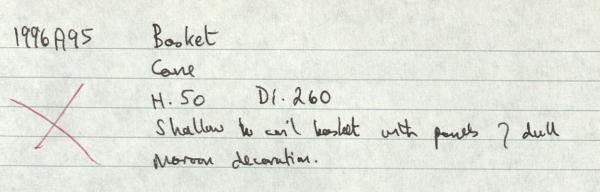 1996A95 Basket
Cane
H. 50 DI. 260
Shallow coil basket with panels of dull
maroon decoration.